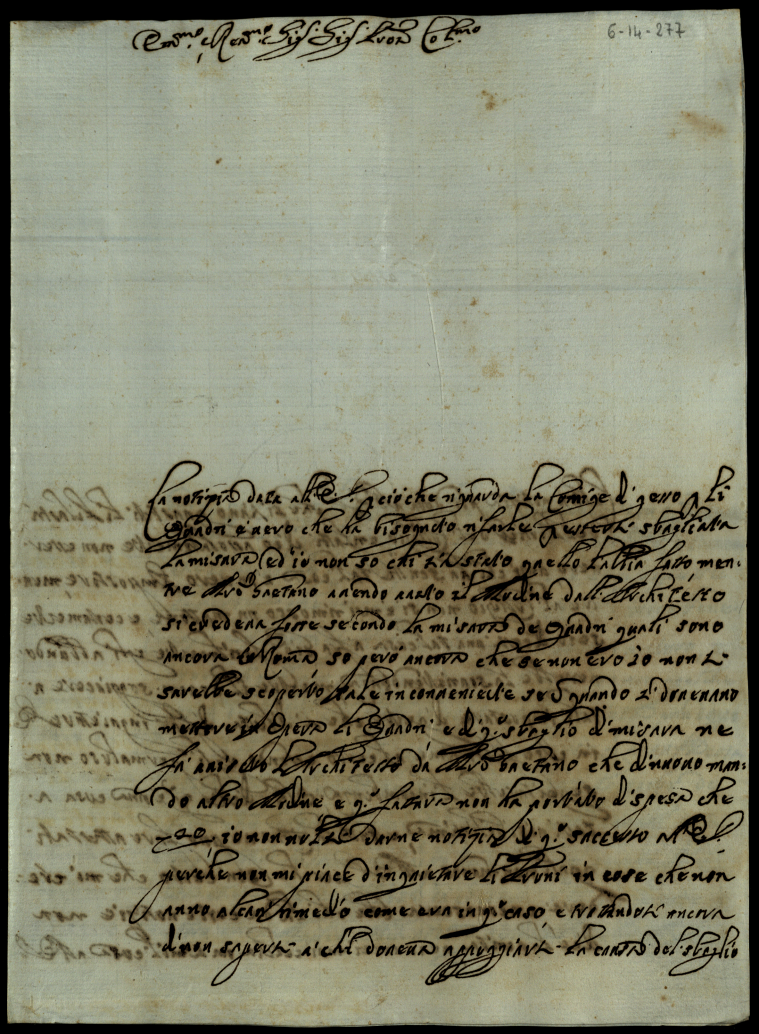 Em.mo e Rev.mo Sig.r Sig.r Pron Col.mo
6-14-277
La notizia data all'E. V. p ciò che riguarda la Cornige di gesso p li
Quadri è vero che ha bisognato rifarle p essersi sbagliata
la misura ed io non so chi sia stato quello l'abbia fatto men:
tre Mro Gaetano avendo auto il Mudine dall'Architetto
si credeva fosse secondo la misura de Quadri quali sono
ancora a Roma so però ancora che se non ero io non si
sarebbe scoperto tale inconveniente se quando si dovevano
mettere in opera li Quadri e di q.o sbaglio di misura ne
fù avisato l'Architetto da Mro Gaetano che di nuovo man:
dò altro Midine e q.a fattura non ha portato di spesa che
io non volsi darne notizia di q.o sucesso all'E. V.
perche non mi piace d'inquietare li Proni in cose che non
anno altro rimedio come era in q.o caso e trovandosi ancora
di non sapere a chi doveva appoggiarsi la causa del sbaglio